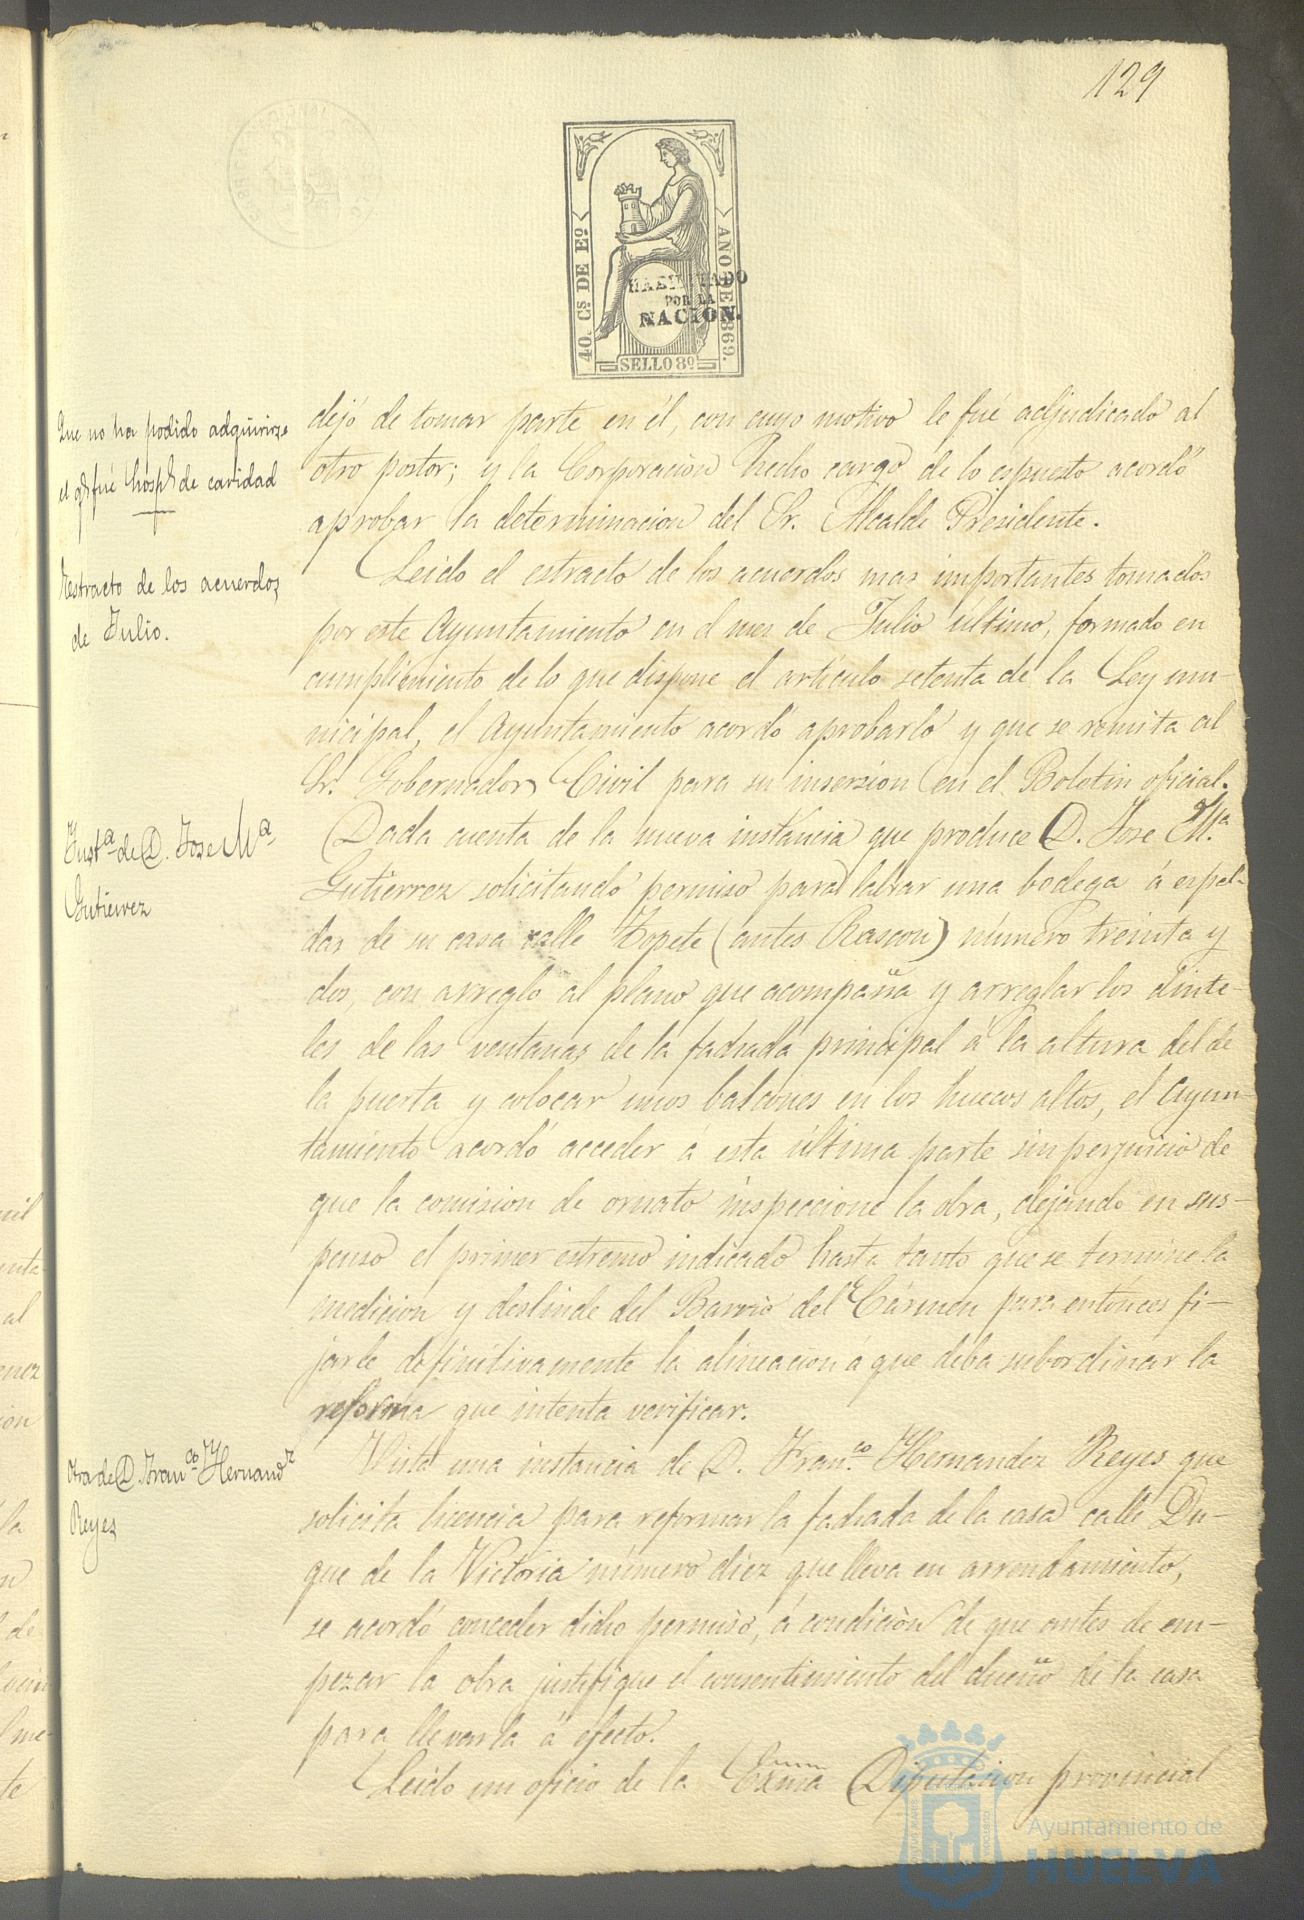 129
40. Cs DE Eº
AÑO DE 1869.
SELLO 8º
HABILITADO
POR LA
NACION.
Que no ha podido adquirirse
el qe fué hospl de caridad
dejó de tomar parte en él, con cuyo motivo le fué adjudicado al
otro postor; y la Corporacion hecho cargo de lo espuesto acordó
aprobar la determinacion del Sr. Alcalde Presidente.
Estracto de los acuerdos
de Julio.
Leido el estracto de los acuerdos mas importantes tomados
por este Ayuntamiento en el mes de Julio último, formado en
cumplimiento de lo que dispone el artículo setenta de la Ley mu-
nicipal, el Ayuntamiento acordó aprobarlo y que se remita al
Sr. Gobernador Civil para su insersion en el Boletin oficial.
Insta de D. Jose Ma
Gutierrez
Dada cuenta de la nueva instancia que produce D. Jose Ma
Gutierrez solicitando permiso para labrar una bodega á espal-
das de su casa calle Topete (antes Rascon) número treinta y
dos, con arreglo al plano que acompaña y arreglar los dinte-
les de las ventanas de la fachada principal á la altura del de
la puerta y colocar unos balcones en los huecos altos, el Ayun-
tamiento acordó acceder á esta última parte sin perjuicio de
que la comision de ornato inspeccione la obra, dejando en sus-
penso el primer estremo indicado hasta tanto que se termine la
medicion y deslinde del Barrio del Cármen para entónces fi-
jarle definitivamente la alineacion á que deba subordinar la
reforma que intenta verificar.
Otra de D. Franco Hernandz
Reyes
Vista una instancia de D. Franco Hernandez Reyes que
solicita licencia para reformar la fachada de la casa calle Du-
que de la Victoria número diez que lleva en arrendamiento,
se acordó conceder dicho permiso, á condicion de que antes de em-
pezar la obra justifique el consentimiento del dueño de la casa
para llevarla á efecto.
Leido un oficio de la Exma Diputacion provincial
Ayuntamiento de
HUELVA